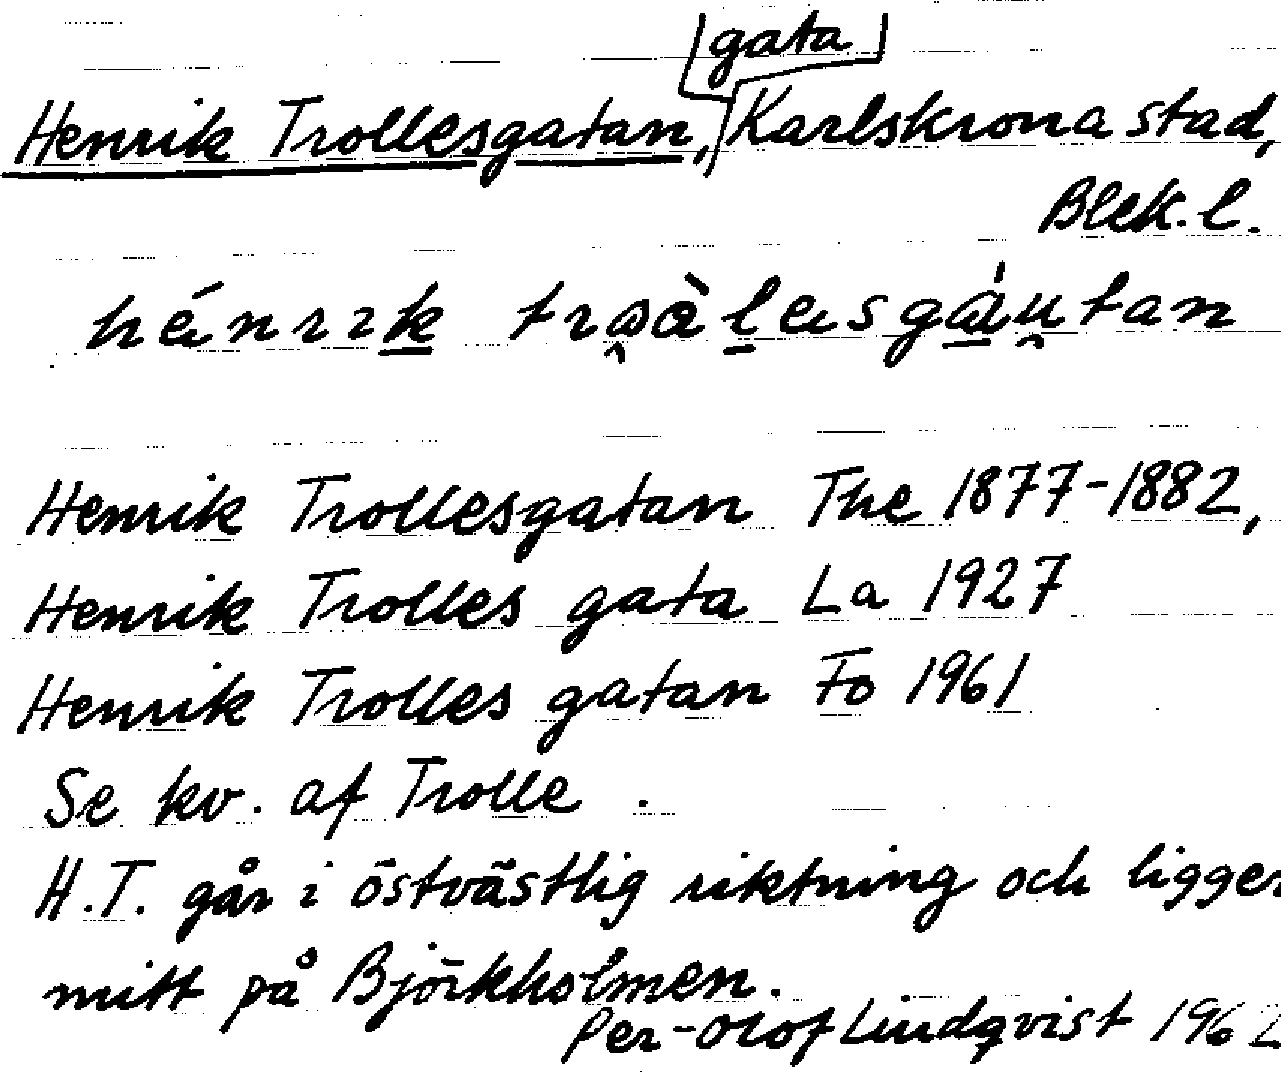 gata
Henrik Trollesgatan, Karlskrona stad,
Blek. l.
Henrik Trollesgatan The 1877-1882,
Henrik Trolles gata La 1927
Henrik Trolles gatan Fo 1961
Se kv. af Trolle.
H.T. går i östvästlig riktning och ligger
mitt på Björkholmen.
Per-Olof Lindqvist 1962